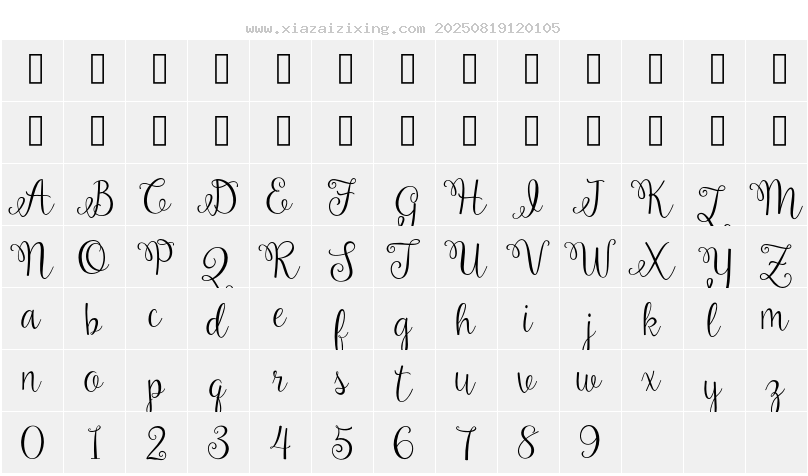 www.xiazaizixing.com 20250819120105
A B C D E F G H I J K L M
N O P Q R S T U V W X Y Z
a b c d e f g h i j k l m
n o p q r s t u v w x y z
0 1 2 3 4 5 6 7 8 9